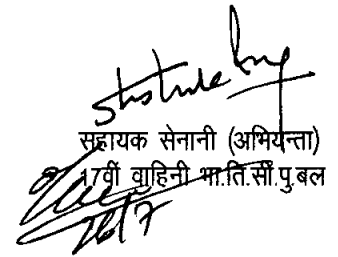 सहायक सेनानी (अभियन्ता)
17वीं वाहिनी भा.ति.सी.पु.बल
26/7